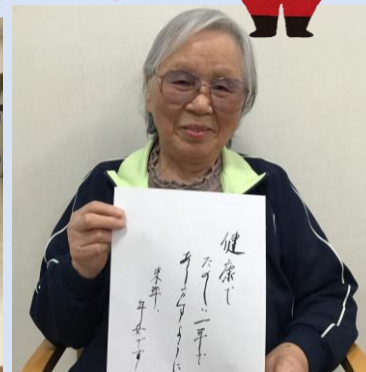 健康で
たのしい一年で
ありますように
来年は
年女です